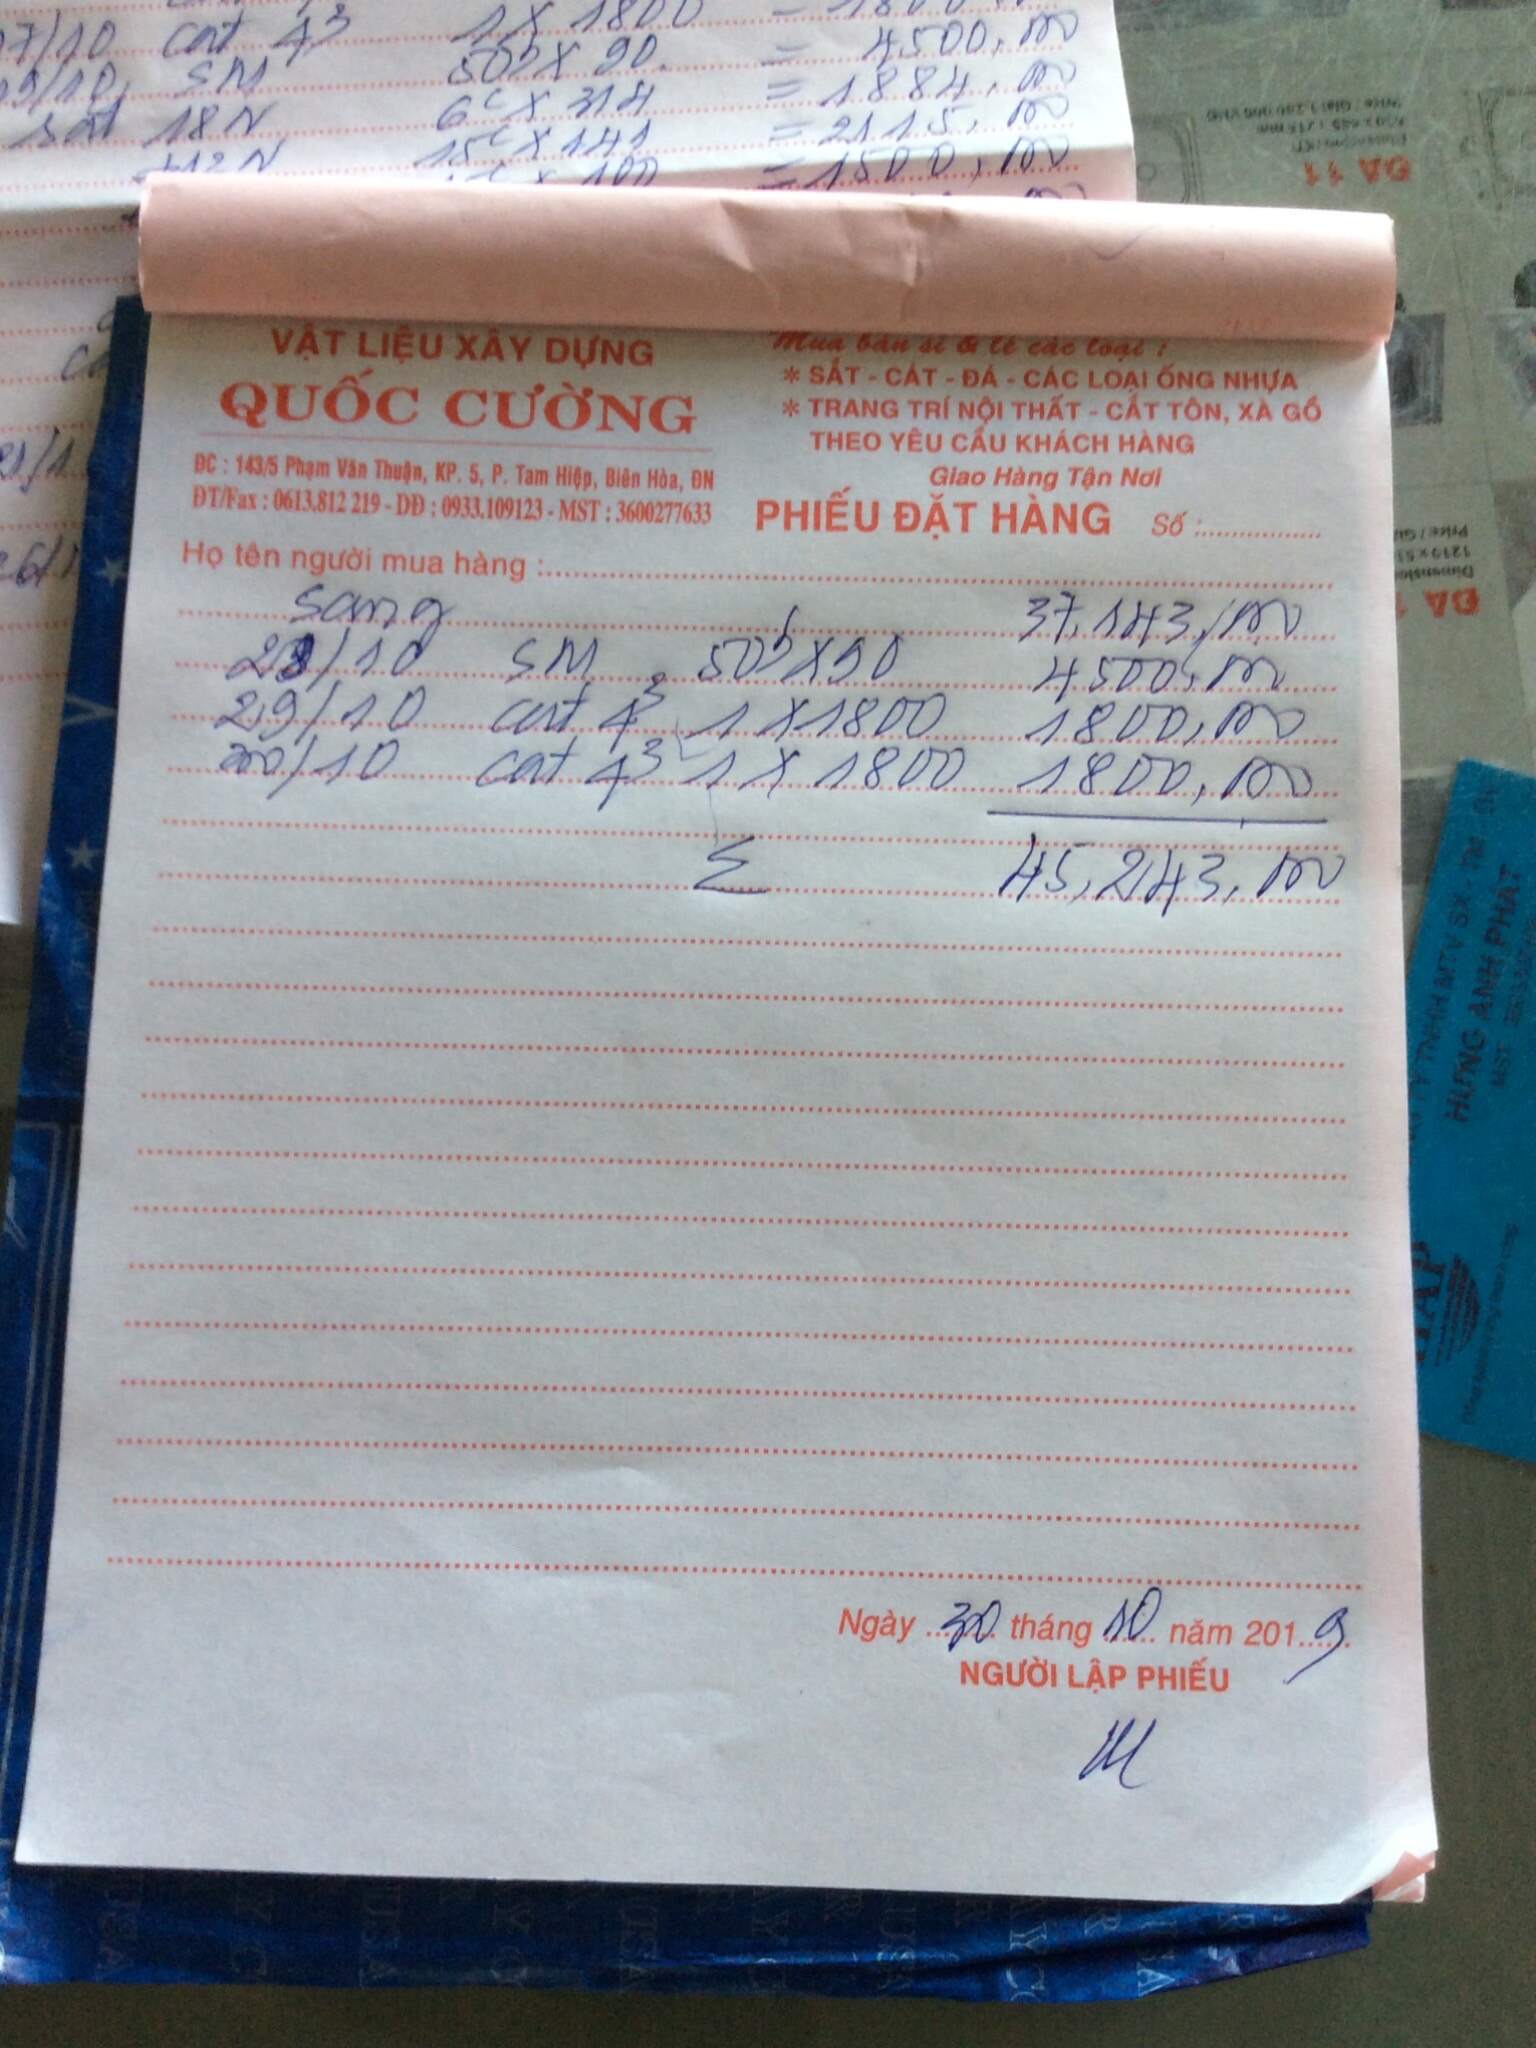 07/10 cat 4³ 1 x 1800 = 1800,000
SM 50b x 90 = 4500,000
sat 18N 6c x 314 = 1884,000
+12N 15c x 141 = 2115,000
x 100 = 1500,000
VẬT LIỆU XÂY DỰNG
QUỐC CƯỜNG
ĐC : 143/5 Phạm Văn Thuận, KP. 5, P. Tam Hiệp, Biên Hòa, ĐN
ĐT/Fax : 0613.812 219 - DĐ : 0933.109123 - MST : 3600277633
Mua bán sỉ & lẻ các loại :
* SẮT - CÁT - ĐÁ - CÁC LOẠI ỐNG NHỰA
* TRANG TRÍ NỘI THẤT - CẮT TÔN, XÀ GỒ
THEO YÊU CẦU KHÁCH HÀNG
Giao Hàng Tận Nơi
PHIẾU ĐẶT HÀNG Số :
Họ tên người mua hàng :
sang 37,143,000
28/10 SM 50b x 90 4500,000
29/10 cat 4³ 1 x 1800 1800,000
30/10 cat 4³ 1 x 1800 1800,000
Σ 45,243,000
Ngày 30 tháng 10 năm 2019
NGƯỜI LẬP PHIẾU
ĐA 11
HƯNG ANH PHÁT
MST